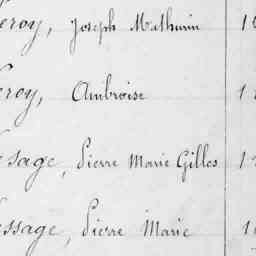 eroy, Joseph Mathurin 1
eroy, Ambroise 1
esage, Pierre Marie Gilles 1
essage, Pierre Marie 1